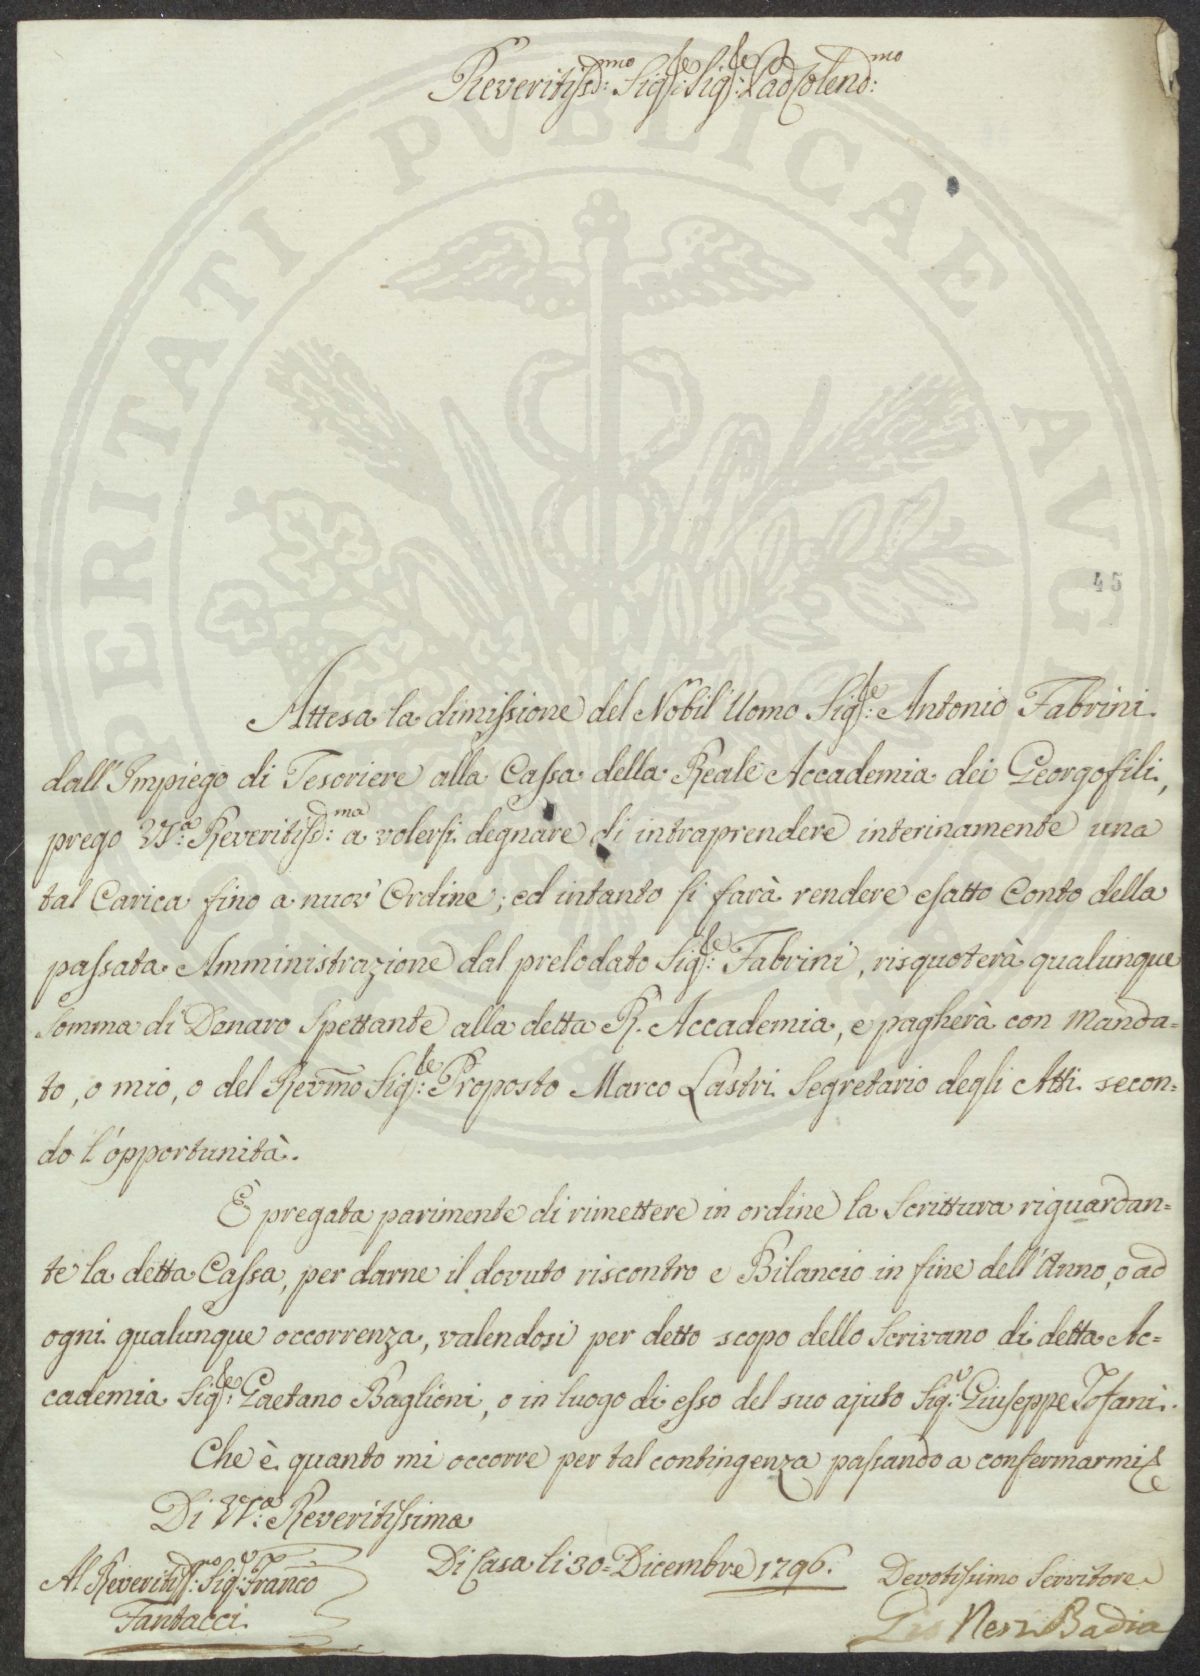 Reveritiss:mo Sig:re Sig:re Pad: Colend:mo
PERITATI PVBLICAE AVG
45
Attesa la dimissione del Nobil'Uomo Sig:re Antonio Fabrini
dall'Impiego di Tesoriere alla Cassa della Reale Accademia dei Georgofili,
prego V.S:a Reveritiss:ma a volersi degnare di intraprendere interinamente una
tal Carica fino a nuov'Ordine; ed intanto si farà rendere esatto Conto della
passata Amministrazione dal prelodato Sig:re Fabrini, risquoterà qualunque
Somma di Danaro Spettante alla detta R. Accademia, e pagherà con Manda=
to, o mio, o del Revermo Sig:re Proposto Marco Lastri Segretario degli Atti secon=
do l'opportunità.
È pregata parimente di rimettere in ordine la Scrittura riguardan=
te la detta Cassa, per darne il dovuto riscontro e Bilancio in fine dell'Anno, o ad
ogni qualunque occorrenza, valendosi per detto scopo dello Scrivano di detta Ac=
cademia Sig:re Gaetano Baglioni, o in luogo di esso del suo ajuto Sig:r Giuseppe Tofani.
Che è quanto mi occorre per tal contingenza passando a confermarmi
Di V.S:a Reveritissima
Al Reveritiss:mo Sig:r Franco
Fantacci
Di Casa li 30= Dicembre 1796.
Devotissimo Servitore
Neri Badia